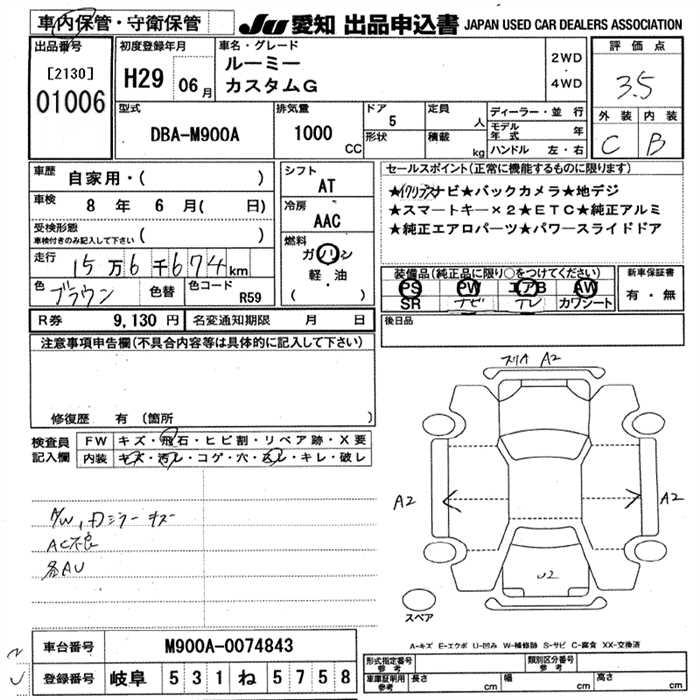 車内保管・守衛保管
JU 愛知 出品申込書 JAPAN USED CAR DEALERS ASSOCIATION
出品番号
[2130]
01006
初度登録年月
H29 06月
車名・グレード
ルーミー
カスタムG
2WD
・
4WD
評価点
3.5
外装 内装
C B
型式
DBA-M900A
排気量
1000 CC
ドア
5
形状
定員
人
積載
kg
ディーラー・並行
モデル年式 年
ハンドル 左・右
車歴
自家用・( )
車検
8年 6月( 日)
受検形態
車検付きのみ記入して下さい ( )
走行
15万6千674km
色
ブラウン
色替
色コード
R59
シフト
AT
冷房
AAC
燃料
ガソリン
軽・油
( )
セールスポイント(正常に機能するものに限ります)
ナビ★バックカメラ★地デジ
★スマートキー×2★ETC★純正アルミ
★純正エアロパーツ★パワースライドドア
装備品(純正品に限り○をつけてください)
PS PW エアB AW
SR ナビ TV カワシート
新車保証書
有・無
後日品
R券 9,130円
名変通知期限 月 日
注意事項申告欄(不具合内容等は具体的に記入して下さい)
修復歴 有(箇所 )
検査員
記入欄
FW キズ・飛石・ヒビ割・リペア跡・X要
内装 キズ・汚レ・コゲ・穴・スレ・キレ・破レ
AC不良
各AU
A2
A2
A2
U2
スペア
A-キズ E-エクボ U-凹み W-補修跡 S-サビ C-腐食 XX-交換済
車台番号 M900A-0074843
登録番号 岐阜 531 ね 5758
形式指定番号
参考
類別区分番号
参考
車庫証明用
参考
長さ cm
幅 cm
高さ cm